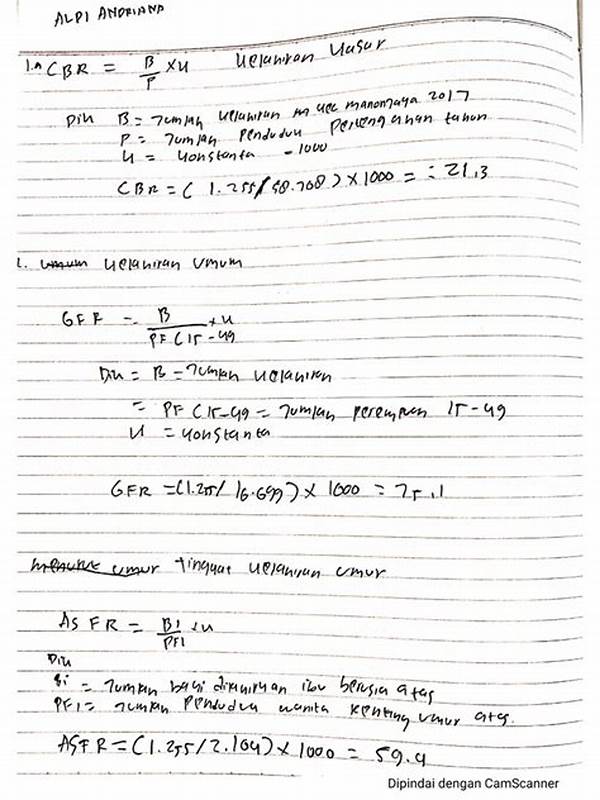 ALPI ANDRIANA
1.a CBR = B/P x k   Kelahiran Kasar
Dik B = Jumlah Kelahiran kec manonjaya 2017
P = Jumlah Penduduk Pertengahan tahun
k = konstanta - 1000
CBR = ( 1.255/58.708 ) x 1000 = = 21,3
Kelahiran Umum
GFR = B / PF (15 - 49 x k
Dik = B = Jumlah Kelahiran
= PF (15-49 = Jumlah perempuan 15-49
k = konstanta
GFR = (1.255/ 16.699) x 1000 = 75.1
Menurut umur Tingkat Kelahiran Umur
ASFR = Bi / PFi x k
Dik
Bi = Jumlah bayi dilahirkan ibu berusia atas
PFi = Jumlah Penduduk wanita umur atas.
ASFR = (1.255/2.104) x 1000 = 59.4
Dipindai dengan CamScanner